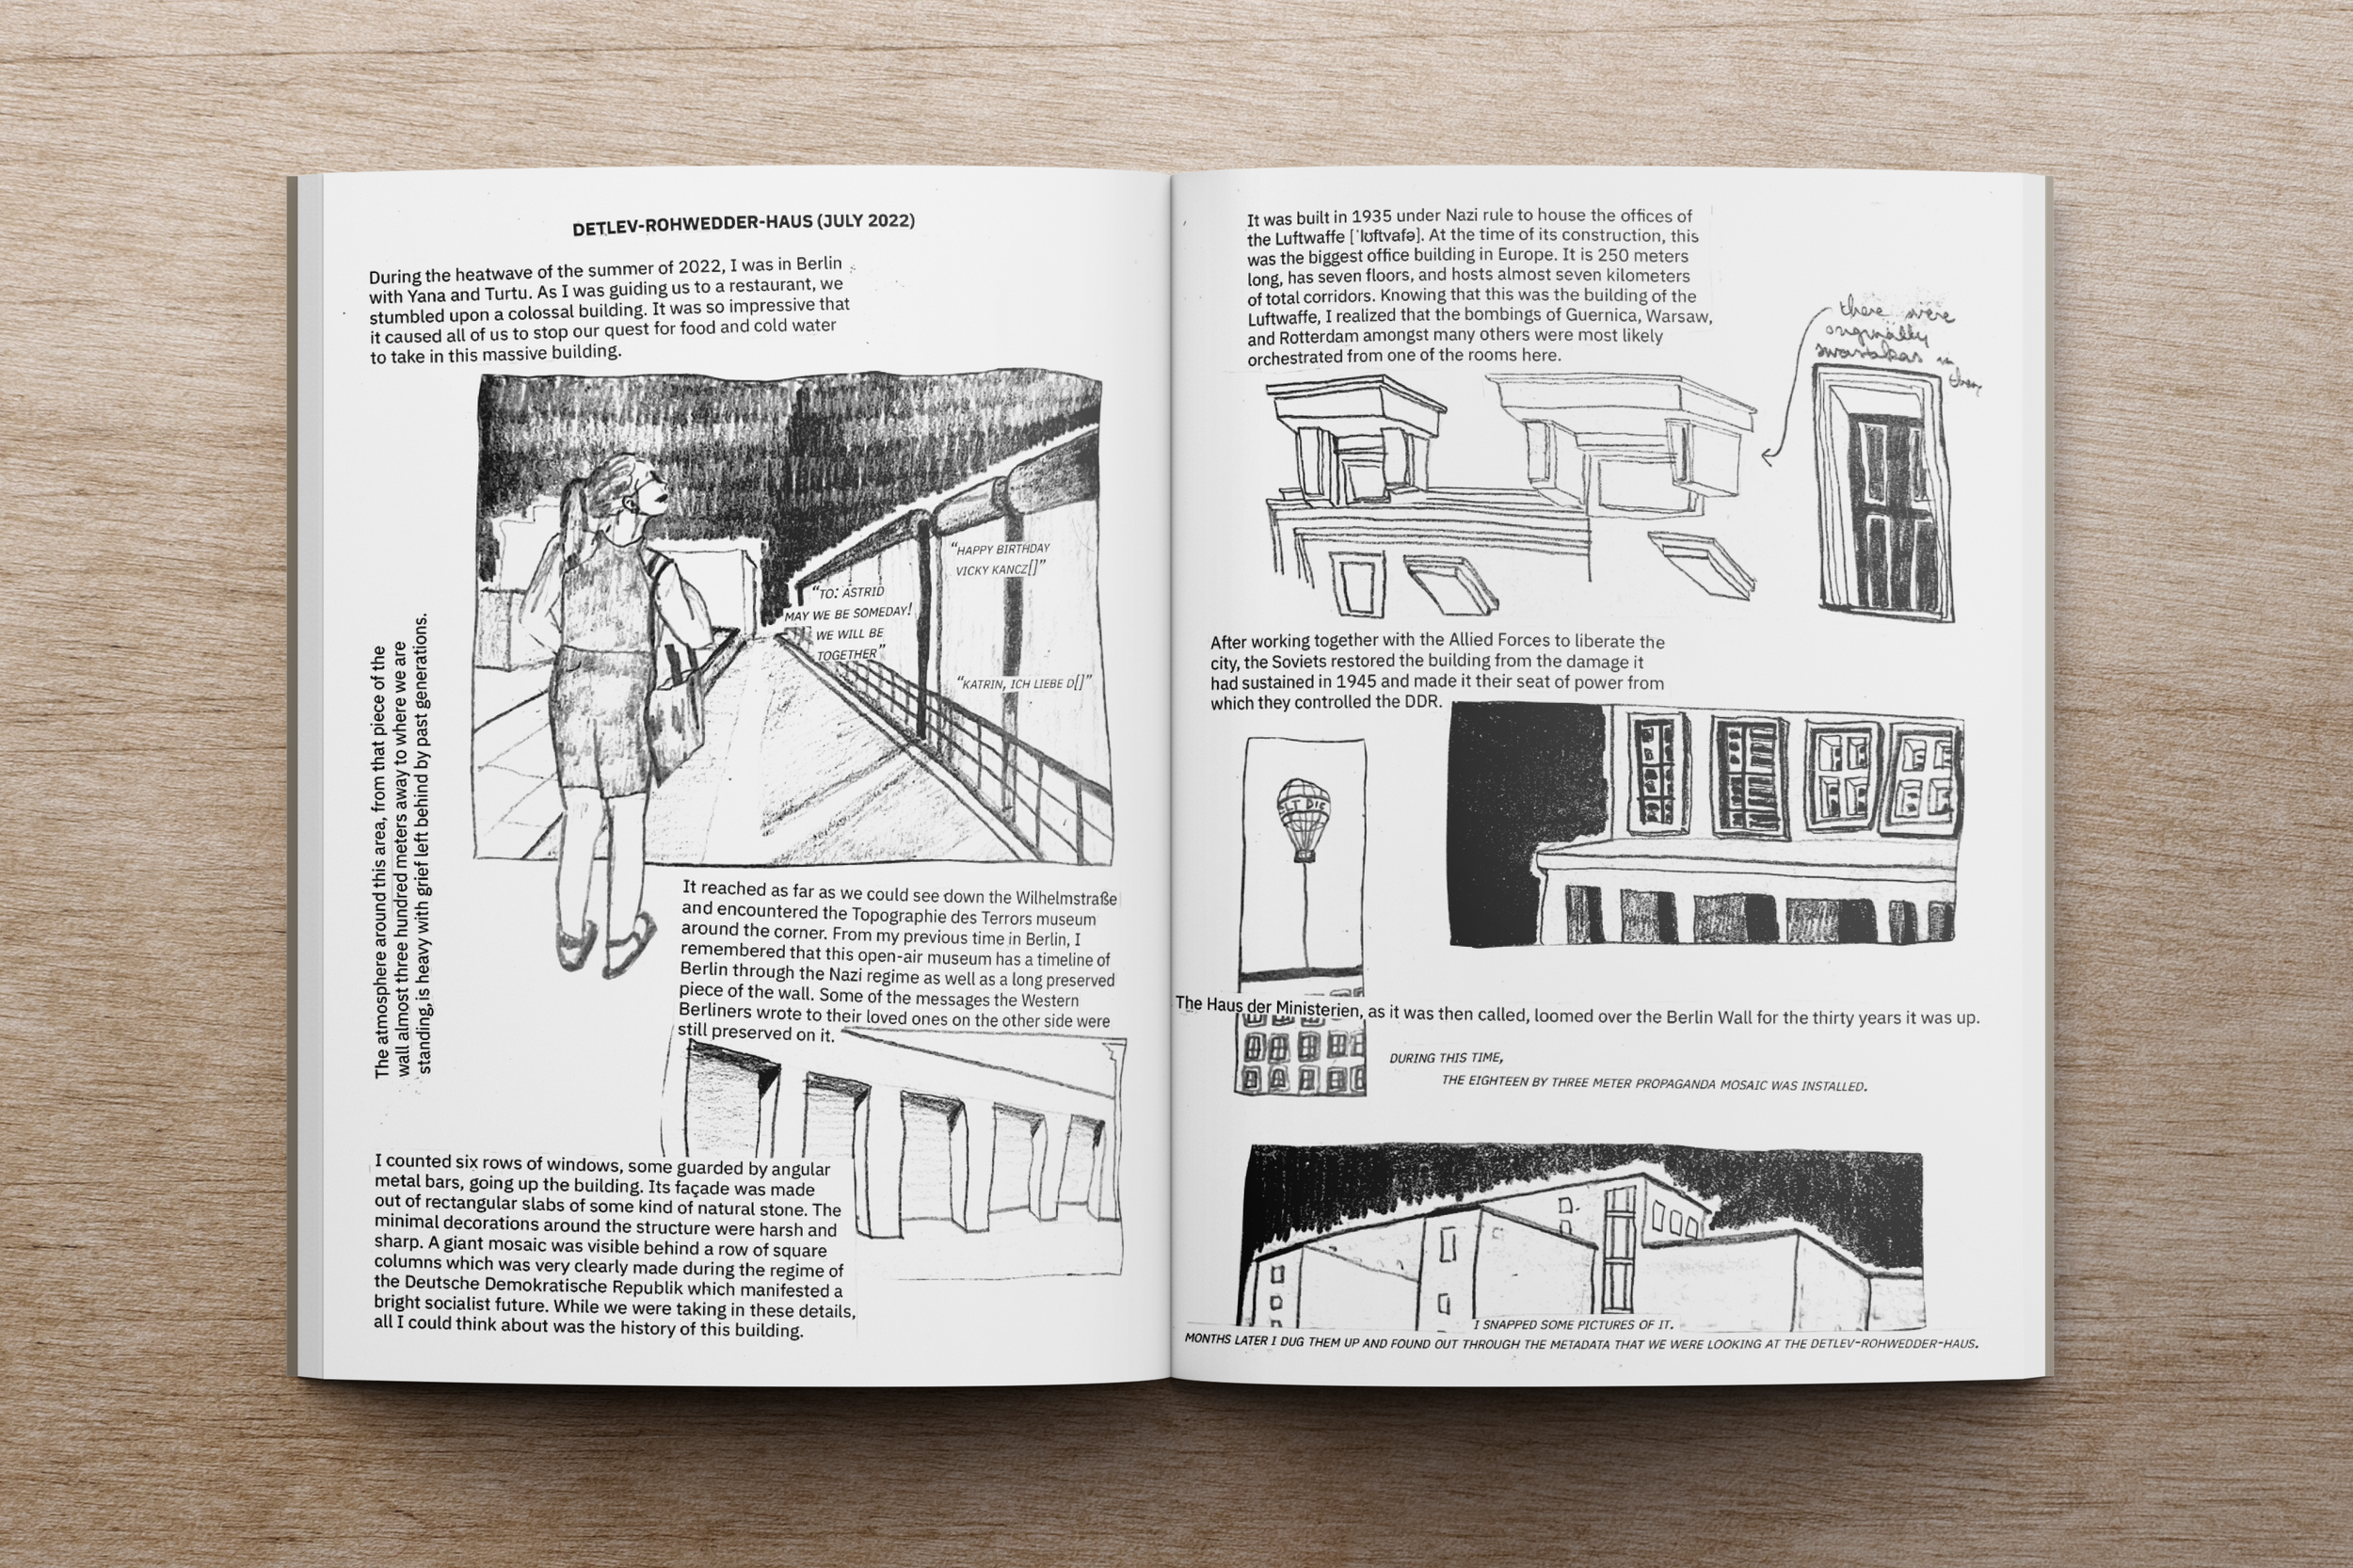 DETLEV-ROHWEDDER-HAUS (JULY 2022)
During the heatwave of the summer of 2022, I was in Berlin
with Yana and Turtu. As I was guiding us to a restaurant, we
stumbled upon a colossal building. It was so impressive that
it caused all of us to stop our quest for food and cold water
to take in this massive building.
"HAPPY BIRTHDAY
VICKY KANCZ[]"
"TO: ASTRID
MAY WE BE SOMEDAY!
WE WILL BE
TOGETHER"
"KATRIN, ICH LIEBE D[]"
The atmosphere around this area, from that piece of the
wall almost three hundred meters away to where we are
standing, is heavy with grief left behind by past generations.
It reached as far as we could see down the Wilhelmstraße
and encountered the Topographie des Terrors museum
around the corner. From my previous time in Berlin, I
remembered that this open-air museum has a timeline of
Berlin through the Nazi regime as well as a long preserved
piece of the wall. Some of the messages the Western
Berliners wrote to their loved ones on the other side were
still preserved on it.
I counted six rows of windows, some guarded by angular
metal bars, going up the building. Its façade was made
out of rectangular slabs of some kind of natural stone. The
minimal decorations around the structure were harsh and
sharp. A giant mosaic was visible behind a row of square
columns which was very clearly made during the regime of
the Deutsche Demokratische Republik which manifested a
bright socialist future. While we were taking in these details,
all I could think about was the history of this building.
It was built in 1935 under Nazi rule to house the offices of
the Luftwaffe [ˈlʊftvafə]. At the time of its construction, this
was the biggest office building in Europe. It is 250 meters
long, has seven floors, and hosts almost seven kilometers
of total corridors. Knowing that this was the building of the
Luftwaffe, I realized that the bombings of Guernica, Warsaw,
and Rotterdam amongst many others were most likely
orchestrated from one of the rooms here.
there were
originally
swastikas in
them
After working together with the Allied Forces to liberate the
city, the Soviets restored the building from the damage it
had sustained in 1945 and made it their seat of power from
which they controlled the DDR.
LT DIE
The Haus der Ministerien, as it was then called, loomed over the Berlin Wall for the thirty years it was up.
DURING THIS TIME,
THE EIGHTEEN BY THREE METER PROPAGANDA MOSAIC WAS INSTALLED.
I SNAPPED SOME PICTURES OF IT.
MONTHS LATER I DUG THEM UP AND FOUND OUT THROUGH THE METADATA THAT WE WERE LOOKING AT THE DETLEV-ROHWEDDER-HAUS.